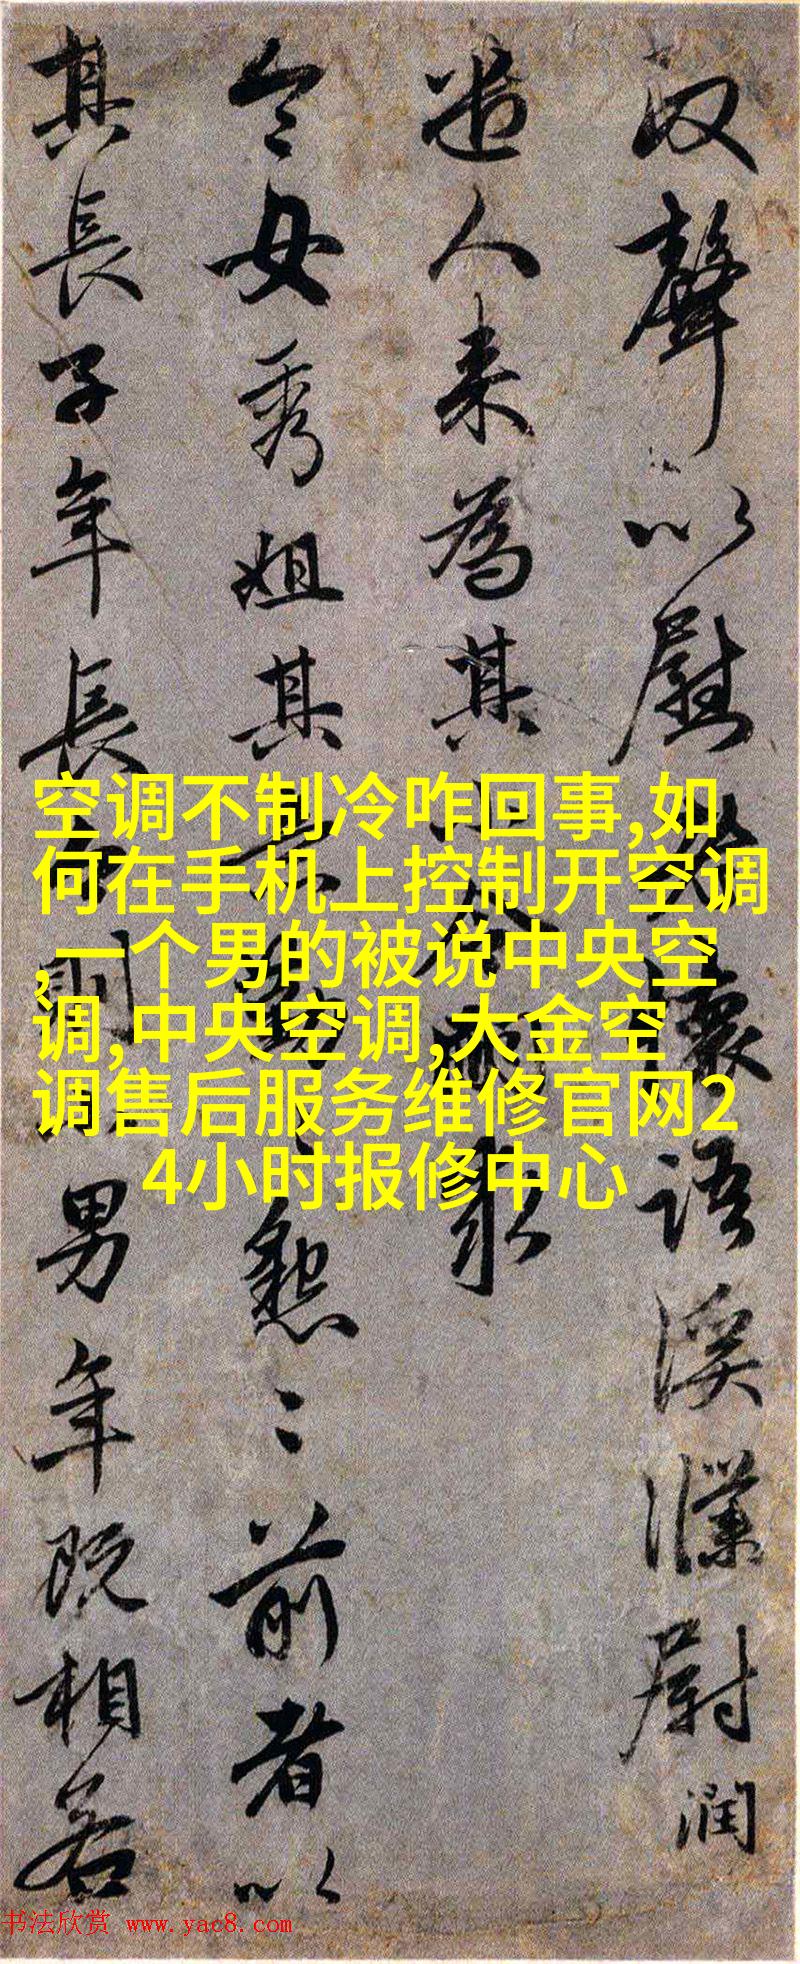 聲以慰懷語溪濮尉潤
人来為其
令母秀姐其懇〻前者以
其長子年長男年既相若
空调不制冷咋回事,如
何在手机上控制开空调
,一个男的被说中央空
调,中央空调,大金空
调售后服务维修官网2
4小时报修中心
书法欣赏 www.yac8.com